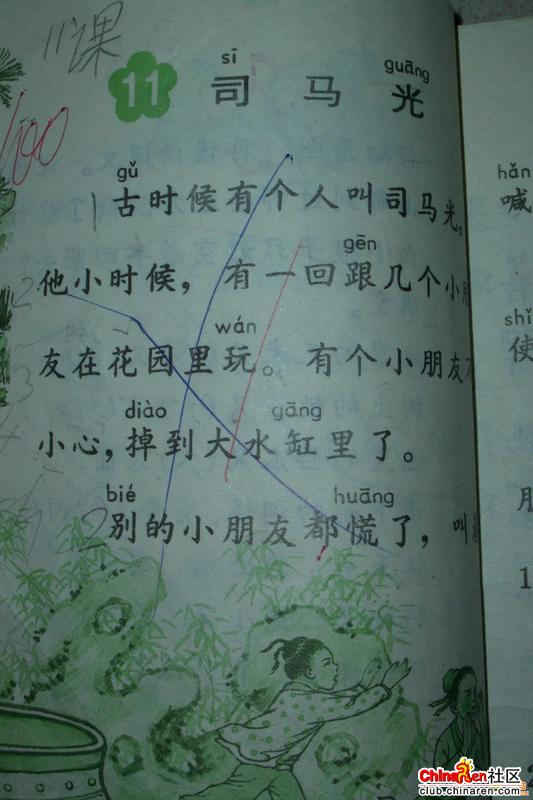 11课
sī guāng
11 司马光
100
gǔ
古时候有个人叫司马光。
gēn
他小时候，有一回跟几个小朋
wán
友在花园里玩。有个小朋友不
diào gāng
小心，掉到大水缸里了。
bié huāng
别的小朋友都慌了，叫
2
hǎn
喊
shǐ
使
1
ChinaRen社区
club.chinaren.com